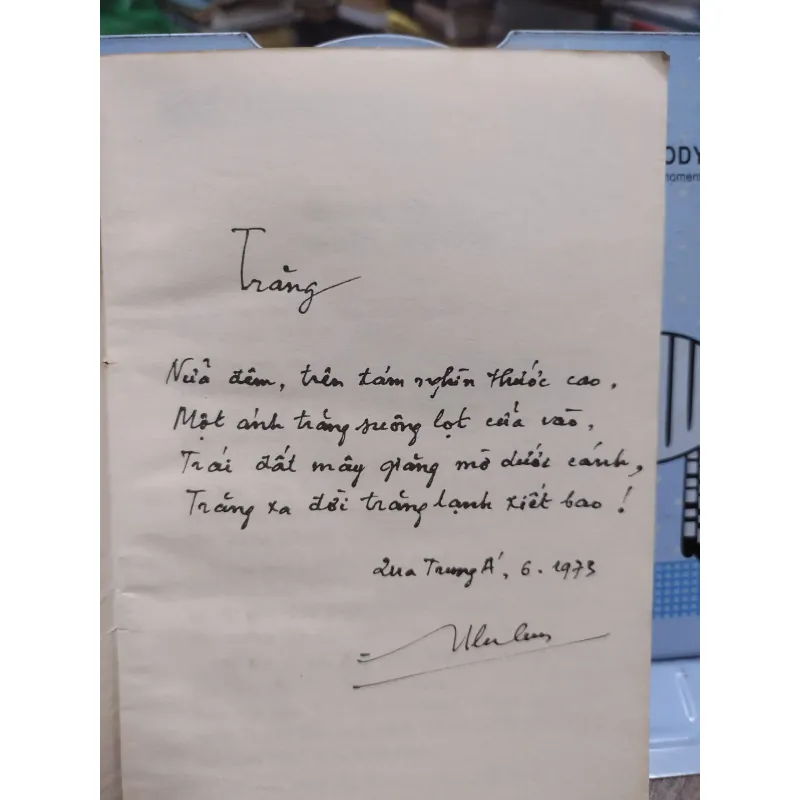 Trăng
Nửa đêm, trên tám nghìn thước cao,
Một ánh trăng suông lọt cửa vào,
Trái đất mây giăng mờ dưới cánh,
Trăng xa đời trăng lạnh xiết bao !
Qua Trung Á, 6. 1973
ODY
moment